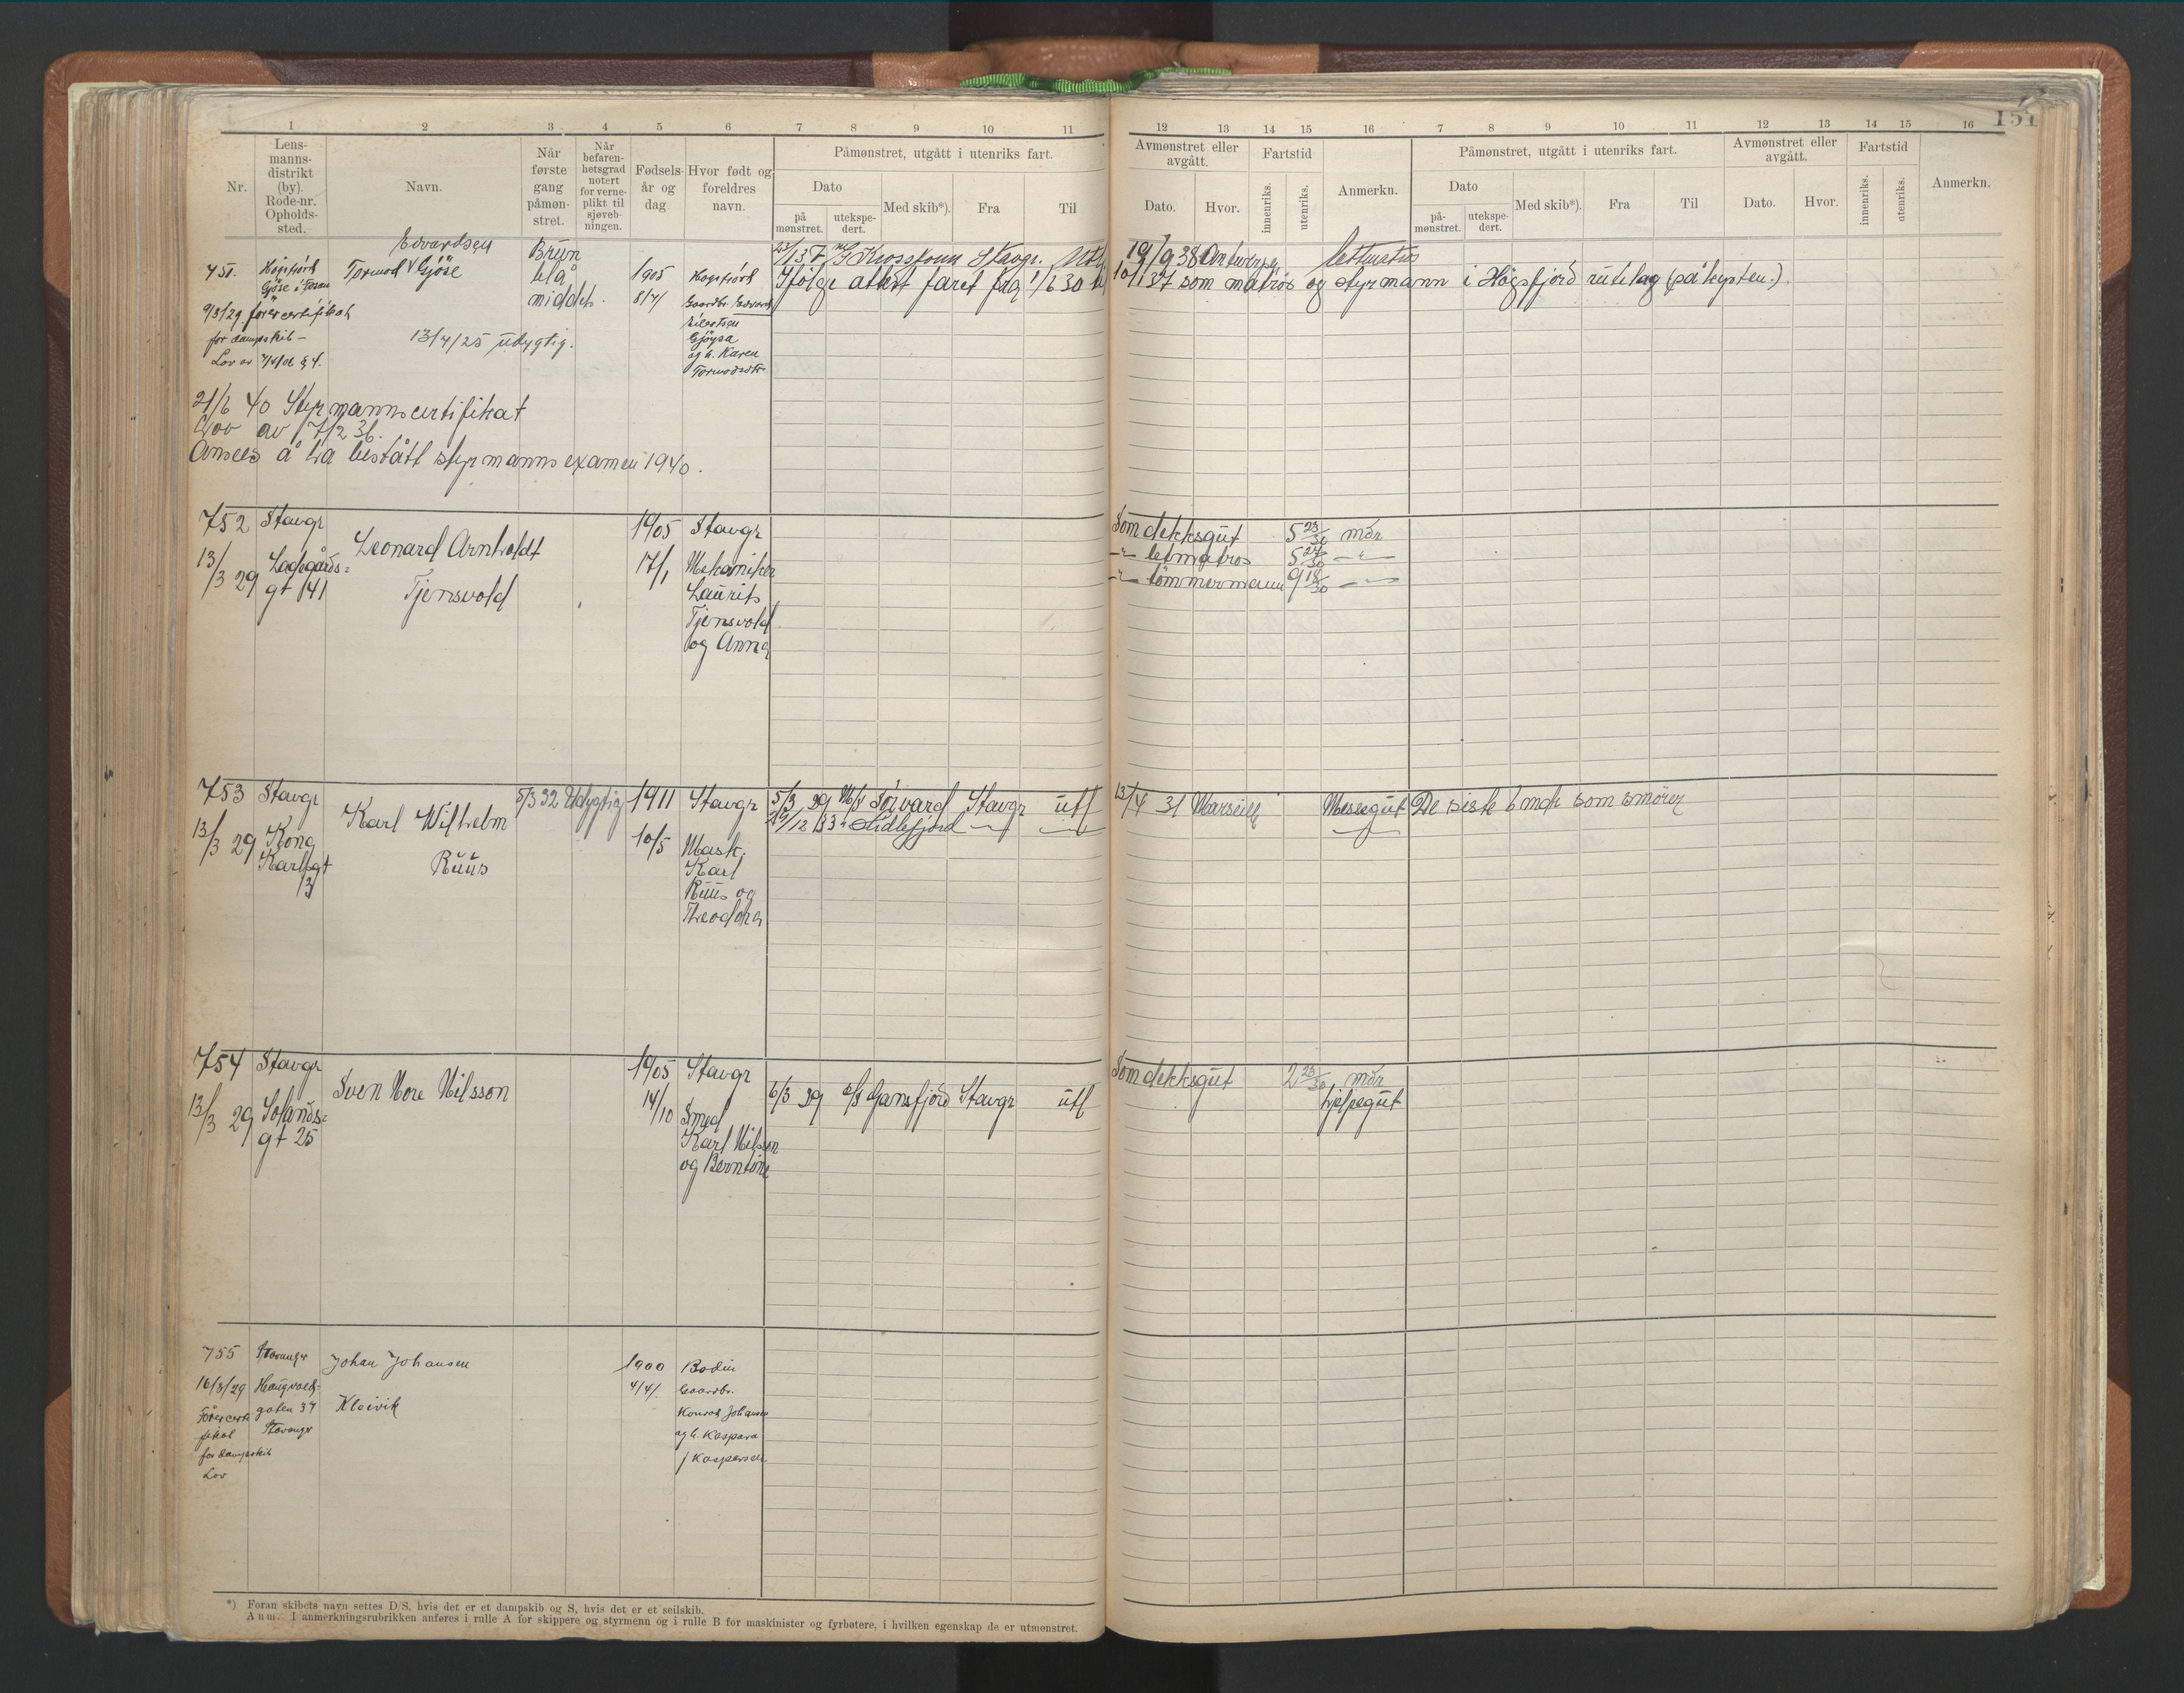 151
1 2 3 4 5 6 7 8 9 10 11
Nr.
Lens-
manns-
distrikt
(by).
Rode-nr.
Opholds-
sted.
Navn.
Når
første
gang
påmøn-
stret.
Når
befaren-
hetsgrad
notert
for verne-
plikt til
sjøveb-
ningen.
Fødsels-
år og
dag
Hvor født og
foreldres
navn.
Påmønstret, utgått i utenriks fart.
Dato
på
mønstret.
utekspe-
dert.
Med skib*).
Fra
Til
12 13 14 15 16 7 8 9 10 11 12 13 14 15 16
Avmønstret eller
avgått.
Dato.
Hvor.
Fartstid
innenriks.
utenriks.
Anmerkn.
Påmønstret, utgått i utenriks fart.
Dato
på-
mønstret.
utekspe-
dert.
Med skib*).
Fra
Til
Avmønstret eller
avgått.
Dato.
Hvor.
Fartstid
innenriks.
utenriks.
Anmerkn.
751.
Høgsfjord
9/3/29 førercertifikat
for dampskib -
Edvardsen
Tormod Gjöse
13/4/25 udygtig.
Brun
blå
middels.
1905
8/4
Høgsfjord
Gaardbr. Edvard
Gjøysa
og h. Karen
Tormodsdtr.
Stavgr. Utl
19/9 38 Antwerpen lettmatros
Ifölge attest faret fra 1/6 30 til
10/1 37 som matros og styrmann i Högsfjord rutelag (på kysten.)
21/6 40 Styrmannscertifikat
Lov av 17/2 36.
Ansees å ha bestått styrmannsexamen 1940.
752
13/3 29
Stavgr
Ladegårds=
gt 41
Leonard Arnholdt
Tjensvold
1905
17/1
Stavgr
Mekaniker
Laurits
Tjensvold
og Anna
Som dekksgut 5 23/30 mdr
-"- letmatros 5 24/30 -"-
-"- tömmermann 9 18/30 -"-
753
13/3 29
Stavgr
Kong
Karlsgt
13
Karl Wilhelm
Ruus
5/3 32 Udygtig
1911
10/5
Stavgr
Mask.
Karl
Ruus og
Theodora
5/3 29 M/S Sörvard Stavgr utl
13/4 31 Marseille Messegut De siste 6 mdr som smörer
/12 33 " Lidlefjord
754
13/3 29
Stavgr
Solands=
gt 25
Sven Hore Nilsson
1905
14/10
Stavgr
Smed
Karl Nilsson
og Berntine
Som dekksgut 2 23/30 mdr
6/3 29 S/S Gansfjörd Stavgr utl
hjelpegut
755
16/3/29
Førercerti
fikat
for dampskib
Lov
Stavanger
Haugvalds-
gaten 37
Stavanger
Johan Johansen
Kleivik
1900
4/4.
Bodin
Gaardbr.
Konrad Johansen
og h. Kaspara
f Kaspersen
*) Foran skibets navn settes D/S, hvis det er et dampskib og S, hvis det er et seilskib.
Anm. I anmerkningsrubrikken anføres i rulle A for skippere og styrmenn og i rulle B for maskinister og fyrbøtere, i hvilken egenskap de er utmønstret.